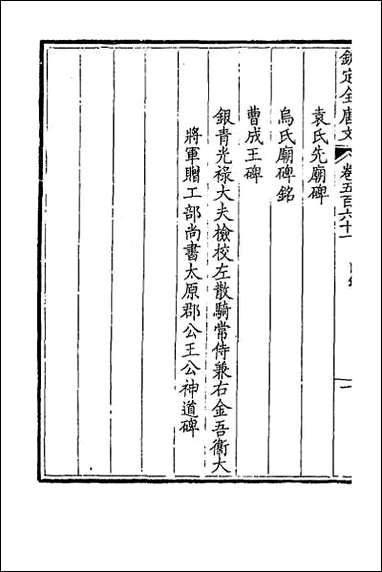 欽定全唐文 卷五百六十一
袁氏先廟碑
烏氏廟碑銘
曹成王碑
銀青光祿大夫檢校左散騎常侍兼右金吾衛大
將軍贈工部尚書太原郡公王公神道碑